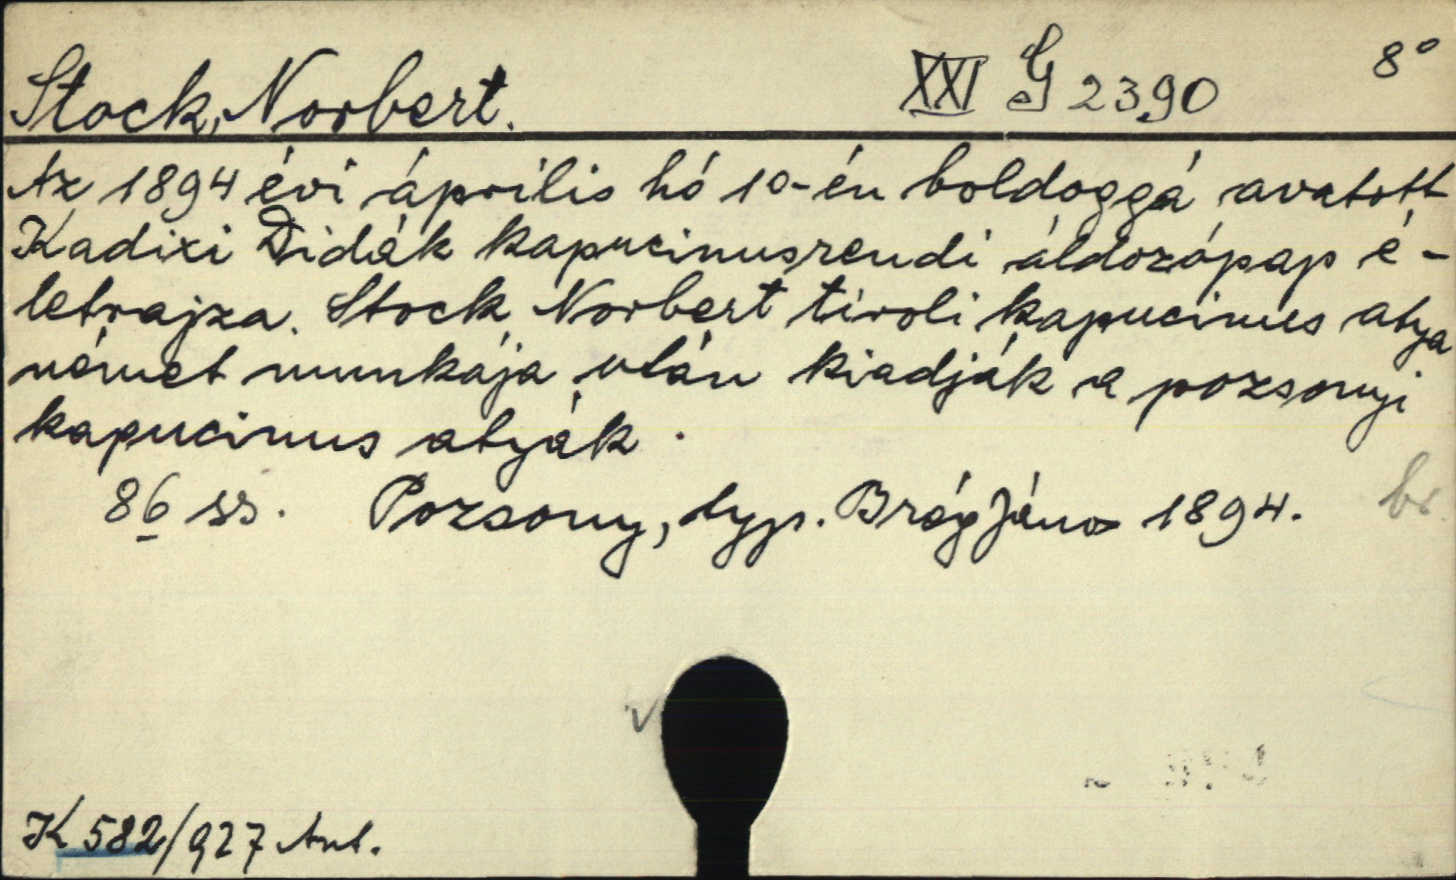 Stock, Norbert. XXI G 2390 8°
Az 1894 évi április hó 10-én boldoggá avatott
Kadixi Didák kapucinusrendi áldozópap é-
letrajza. Stock Norbert tiroli kapucinus atya
német munkája után kiadják a pozsonyi
kapucinus atyák.
86 ss. Pozsony, typ. Brág János 1894. br.
K 582/927 Ant.